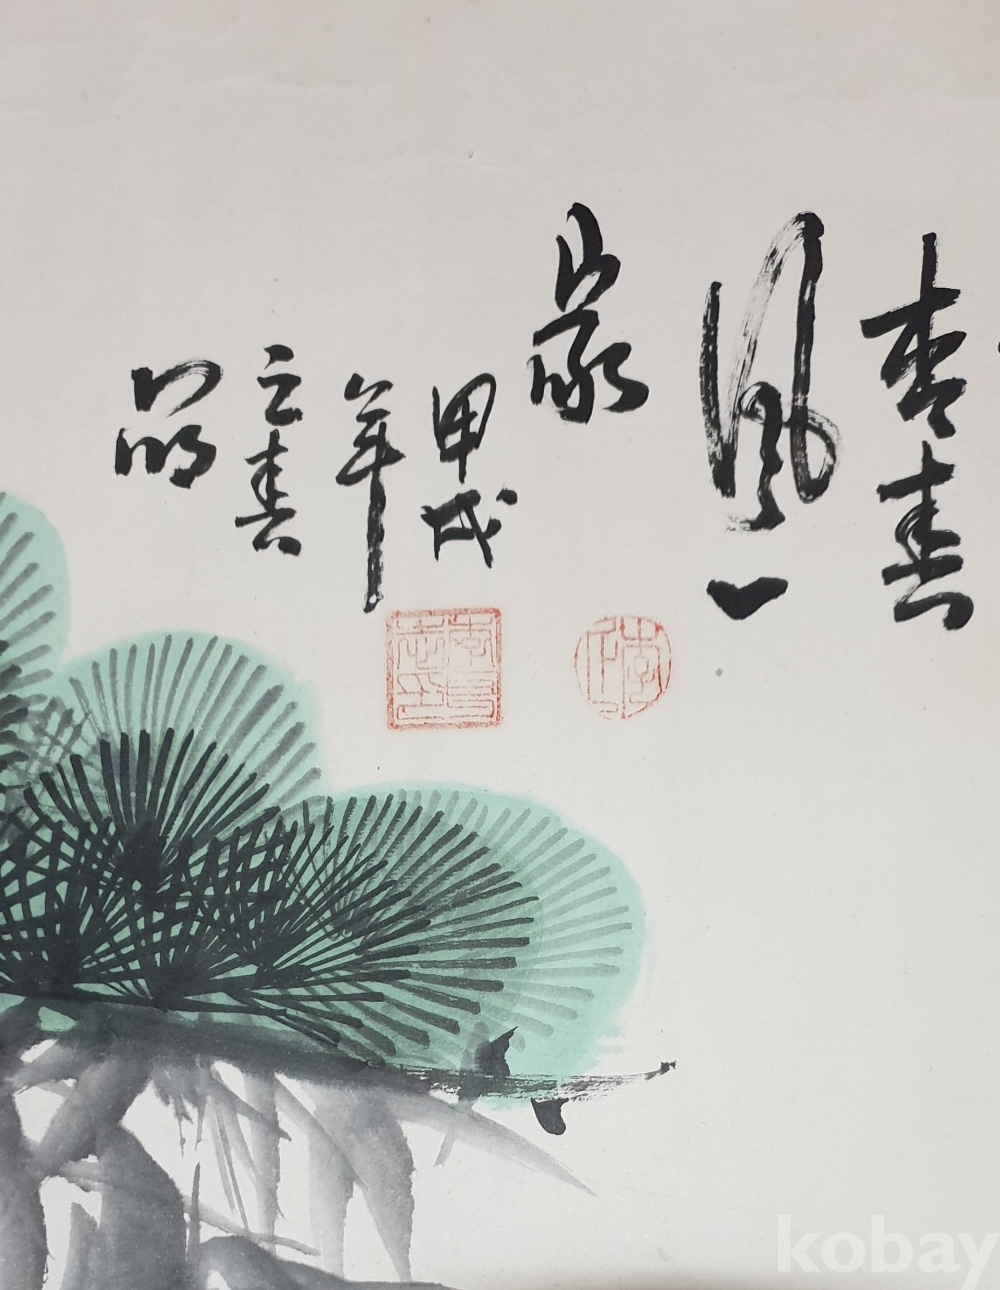 李春
風一
家
甲戌
年
立春
kobay